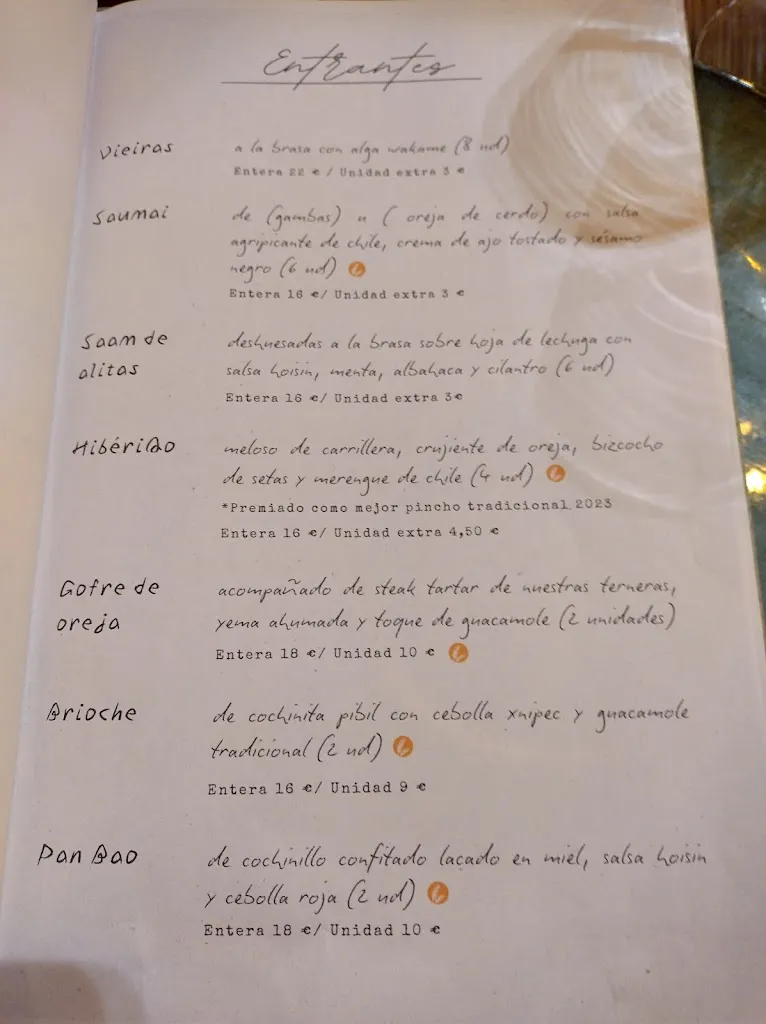 Entrantes
Vieiras a la brasa con alga wakame (8 ud)
Entera 22 €/ Unidad extra 3 €
Saumai de (gambas) u ( oreja de cerdo) con salsa
agripicante de chile, crema de ajo tostado y sésamo
negro (6 ud)
Entera 16 €/ Unidad extra 3 €
Saam de deshuesadas a la brasa sobre hoja de lechuga con
alitas salsa hoisin, menta, albahaca y cilantro (6 ud)
Entera 16 €/ Unidad extra 3€
HibériBao meloso de carrillera, crujiente de oreja, bizcocho
de setas y merengue de chile (4 ud)
*Premiado como mejor pincho tradicional 2023
Entera 16 €/ Unidad extra 4,50 €
Gofre de acompañado de steak tartar de nuestras terneras,
oreja yema ahumada y toque de guacamole (2 unidades)
Entera 18 €/ Unidad 10 €
Brioche de cochinita pibil con cebolla xnipec y guacamole
tradicional (2 ud)
Entera 16 €/ Unidad 9 €
Pan Bao de cochinillo confitado lacado en miel, salsa hoisin
y cebolla roja (2 ud)
Entera 18 €/ Unidad 10 €